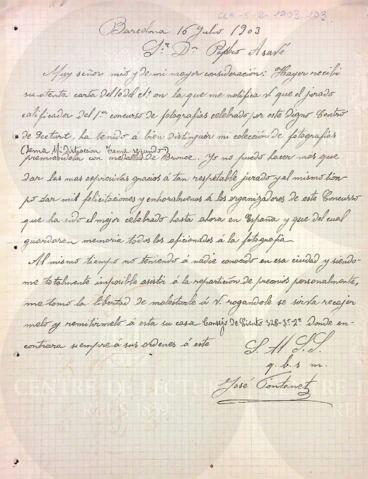 Barcelona 16 Julio 1903
Sr. Dn. Pedro
Muy señor mio y de mi mayor consideracion: Hayer recibi
su atenta carta del 10 del ct. en la que me notifica V. que el jurado
calificador del 1er concurso de fotografias celebrado por este digno Centro
de Lectura, ha tenido á bien distinguir mi coleccion de fotografias
(lema
premiandola con medalla de Bronce. Yo no puedo hacer mas que
dar las mas espresivas gracias á tan respetable jurado y al mismo tiem-
po dar mil felicitaciones y enhorabuenas á los organizadores de este Concurso
que ha sido el mejor celebrado hasta ahora en España y que del cual
guardaran memoria todos los aficionados á la fotografia.
Al mismo tiempo no teniendo á nadie conocido en esa ciudad y siendo-
me totalmente imposible asistir á la reparticion de premios personalmente,
me tomo la libertad de molestarle á V. rogandole se sirva recojer
melo y remitirmelo á esta su casa Consejo de Ciento 328-3º-2ª Donde en-
contrara siempre á sus ordenes á este
S. S. S.
q. b. s. m.
José Fontanet
CENTRE DE LECTURA
REUS 1859